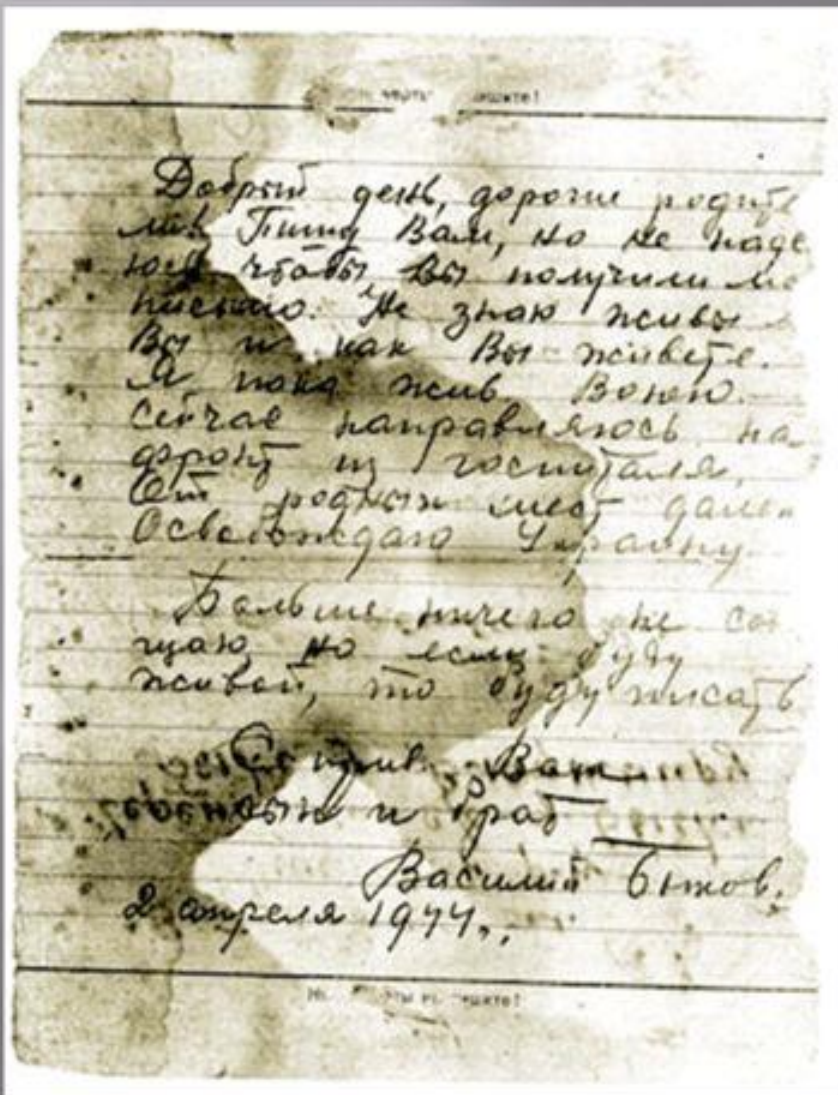 Добрый день, дорогие родите
ли. Пишу Вам, но не наде
юсь чтобы Вы получили мо
письмо. Не знаю живы
Вы и как Вы живете.
Я пока жив. Воюю.
Сейчас направляюсь на
фронт из госпиталя.
От родных мест дале
Освобождаю Украину
Больше ничего не соо
щаю, но если буду
живой, то буду писать
Вам
сын и брат
Василий Быков.
2 апреля 1944